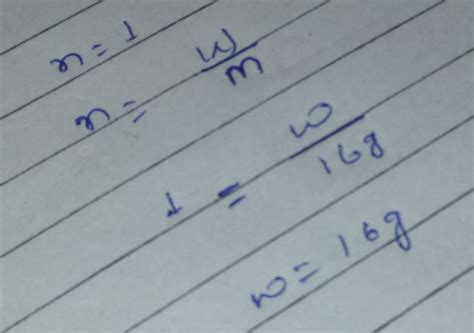 n = 1
n = w/m
1 = w/16g
w = 16g